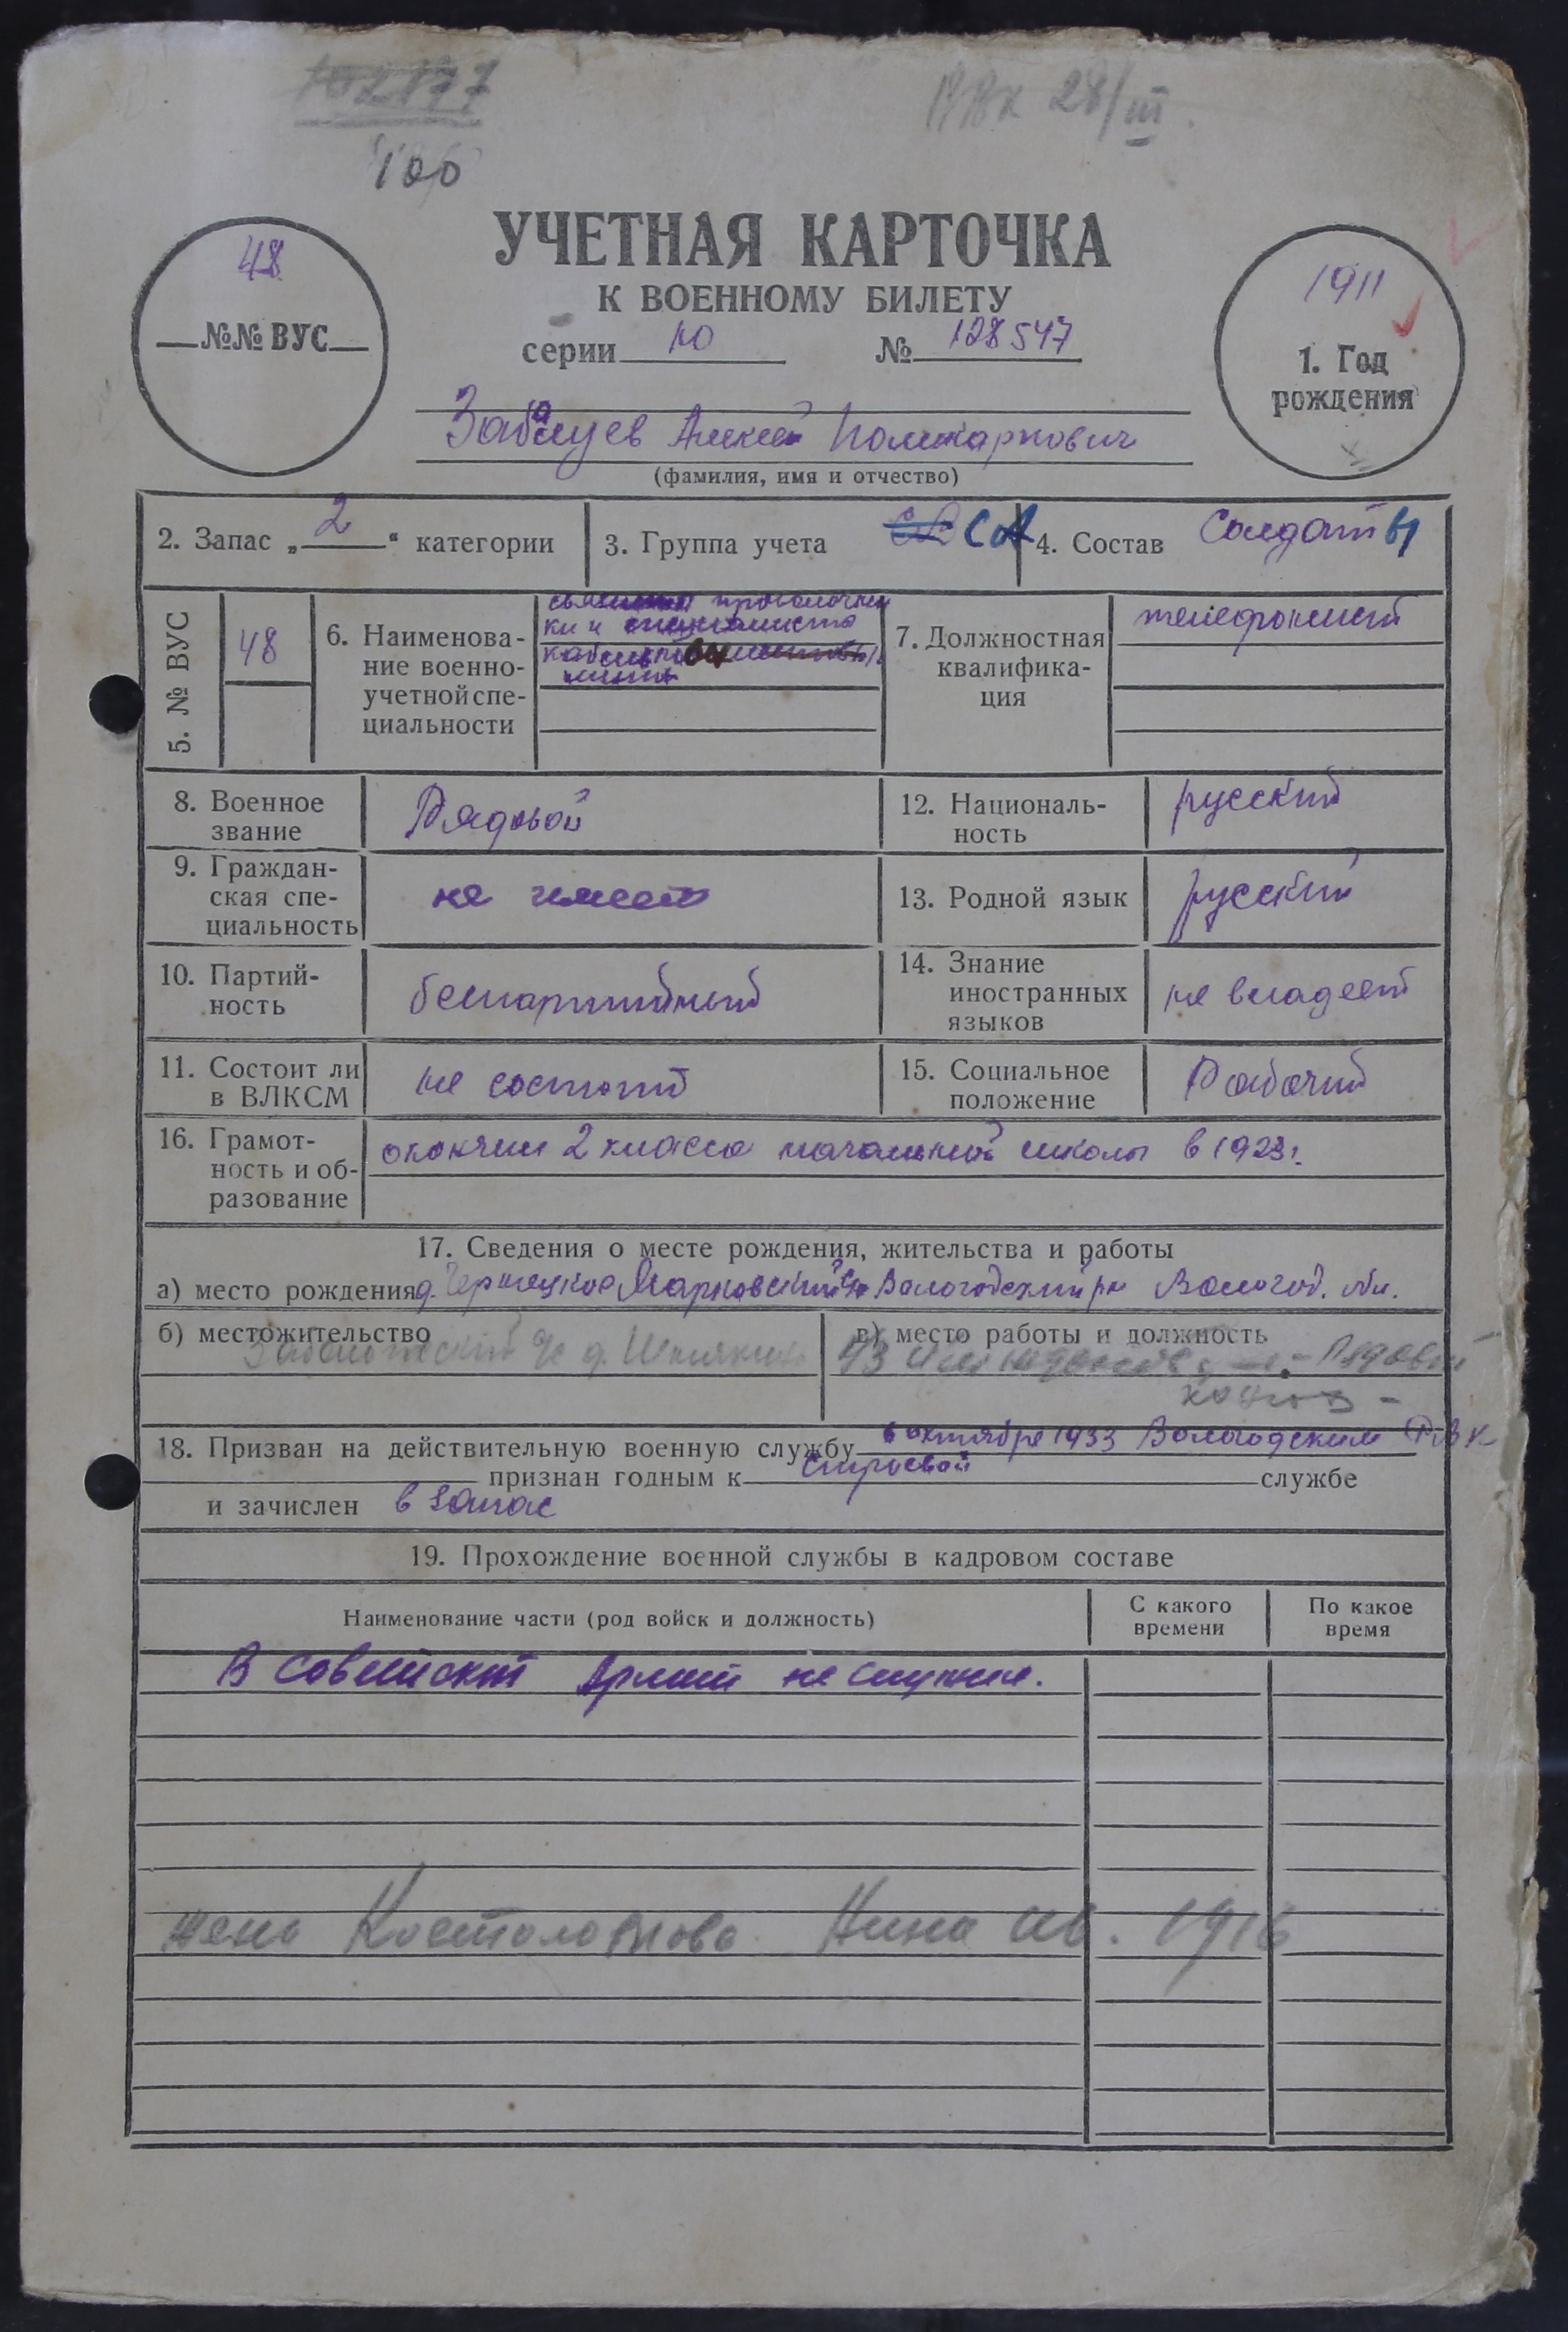 102177
100
РВК 28/III.
УЧЕТНАЯ КАРТОЧКА
К ВОЕННОМУ БИЛЕТУ
48
№№ ВУС
серии Ю № 128547
1911
1. Год
рождения
Забалуев Алексей Поликарпович
(фамилия, имя и отчество)
2. Запас „ 2 “ категории
3. Группа учета СА
4. Состав Солдаты
5. № ВУС
48
6. Наименова-
ние военно-
учетной спе-
циальности
проволочни
ки и
7. Должностная
квалифика-
ция
телефонист
8. Военное
звание
Рядовой
12. Националь-
ность
русский
9. Граждан-
ская спе-
циальность
не имеет
13. Родной язык
русский
10. Партий-
ность
беспартийный
14. Знание
иностранных
языков
не владеет
11. Состоит ли
в ВЛКСМ
не состоит
15. Социальное
положение
Рабочий
16. Грамот-
ность и об-
разование
окончил 2 класса начальной школы в 1923г.
17. Сведения о месте рождения, жительства и работы
а) место рождения д. Марковский с/с Вологодский рн Вологод. обл.
б) местожительство
в) место работы и должность
Рядовой
18. Призван на действительную военную службу в октябре 1933 Вологодским РВК
признан годным к строевой службе
и зачислен в запас
19. Прохождение военной службы в кадровом составе
Наименование части (род войск и должность)
С какого
времени
По какое
время
В Советской Армии не служил.
жена Костоломова Нина Ив. 1916